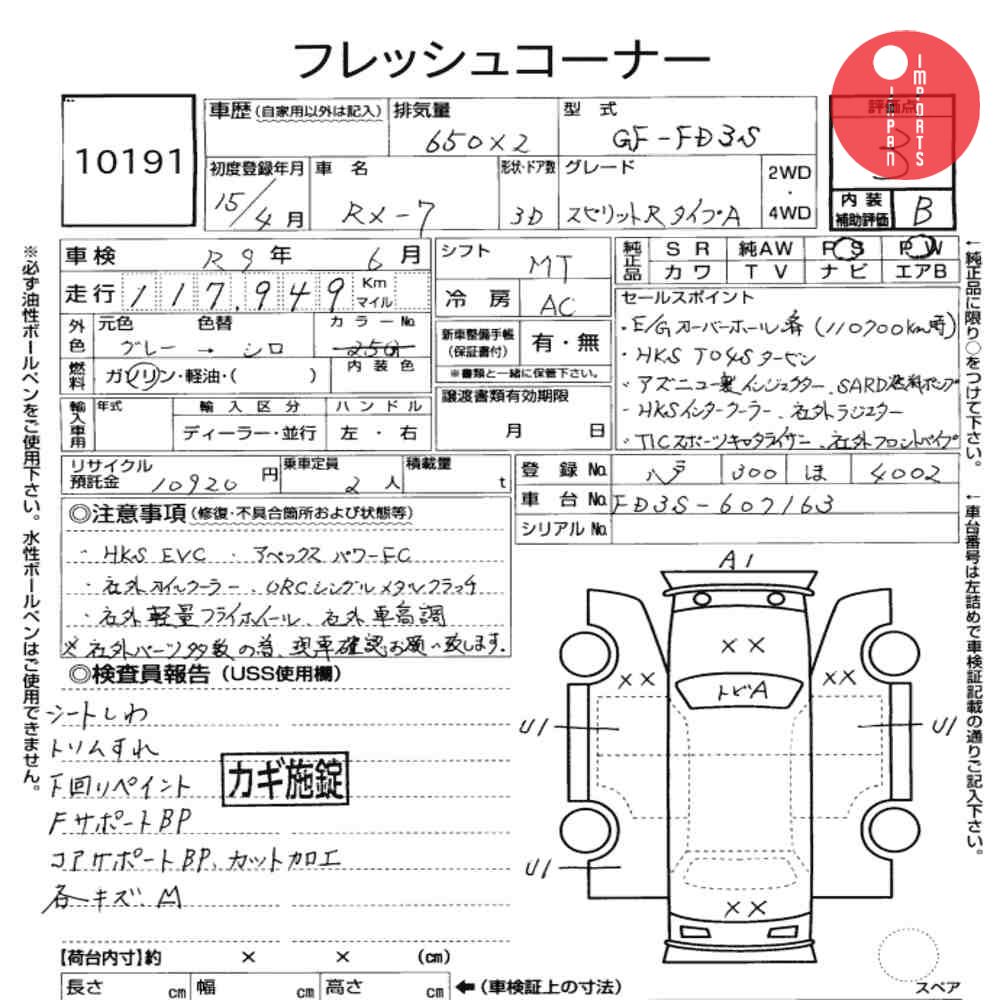 フレッシュコーナー
IMPORTS
JAPAN
10191
車歴(自家用以外は記入)
排気量
650×2
型 式
GF-FD3S
評価点
3
初度登録年月
15/4月
車 名
RX-7
形状・ドア数
3D
グレード
スピリットRタイプA
2WD
・
4WD
内 装
補助評価
B
車検 R9年 6月
走行 117,949 Km マイル
シフト MT
冷 房 AC
純正品
SR 純AW PS PW
カワ TV ナビ エアB
外色
元色 色替
グレー → シロ
カラーNo.
燃料
ガソリン・軽油・( )
内装色
新車整備手帳
(保証書付)
有・無
※書類と一緒に保管下さい。
セールスポイント
・E/Gオーバーホール済(110700km時)
・HKS T04Sタービン
・アズニュー製インジェクター、SARD燃料ポンプ
・HKSインタークーラー、社外ラジエター
・TICスポーツキャタライザー、社外フロントパイプ
輸入車用
年式
輸入区分
ディーラー・並行
ハンドル
左・右
譲渡書類有効期限
月 日
リサイクル
預託金 10920 円
乗車定員
2 人
積載量
t
登録No. 300 ほ 4002
車台No. FD3S-607163
シリアルNo.
◎注意事項(修復・不具合箇所および状態等)
・HKS EVC ・アペックス パワーFC
・社外オイルクーラー、ORCシングルメタルクラッチ
・社外軽量フライホイール、社外車高調
※社外パーツ多数の為、現車確認お願い致します。
◎検査員報告(USS使用欄)
シートしわ
トリムすれ
下回リペイント
FサポートBP
コアサポートBP、カット加工
各キズ、M
カギ施錠
A1
××
××
××
トビA
U1
U1
U1
××
【荷台内寸】約 × × (cm)
長さ cm 幅 cm 高さ cm ←(車検証上の寸法)
スペア
※必ず油性ボールペンをご使用下さい。水性ボールペンはご使用できません。
←純正品に限り○をつけて下さい。
←車台番号は左詰めで車検証記載の通りご記入下さい。